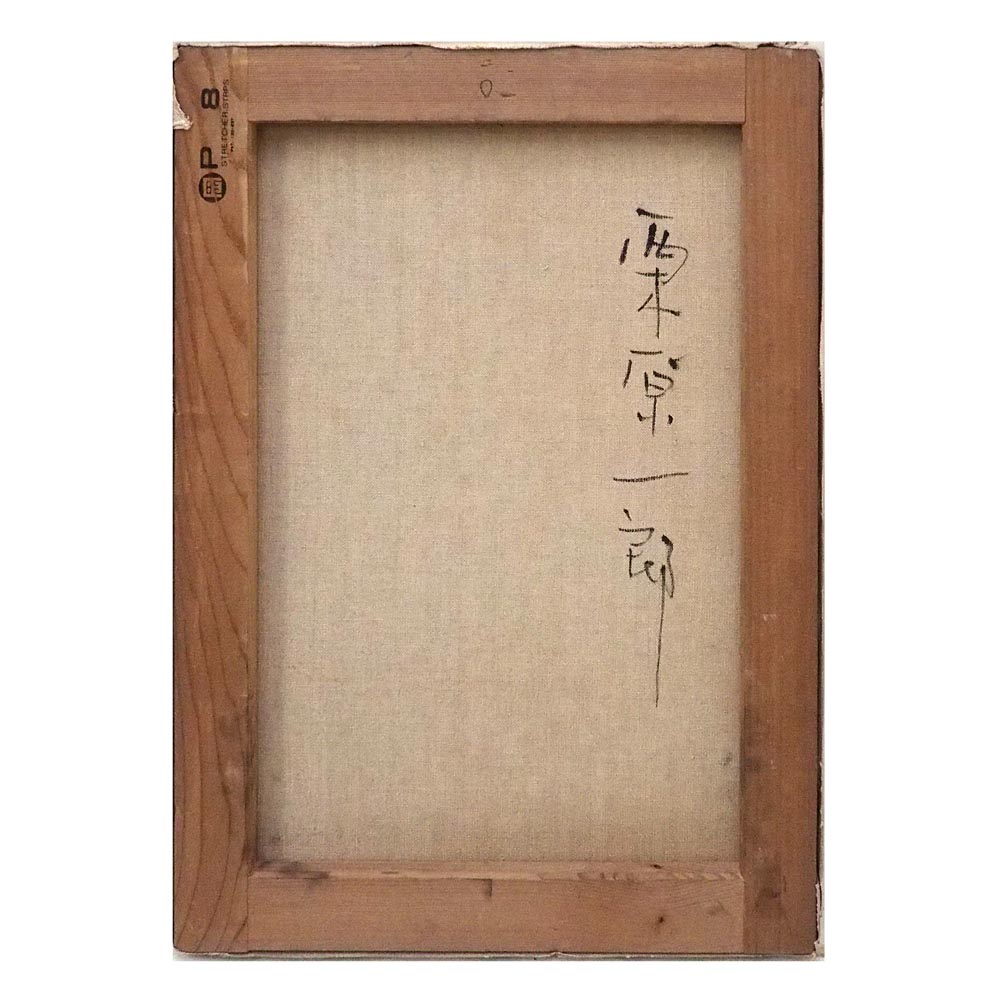 栗原一郎
P 8
STRETCHER STRIPS